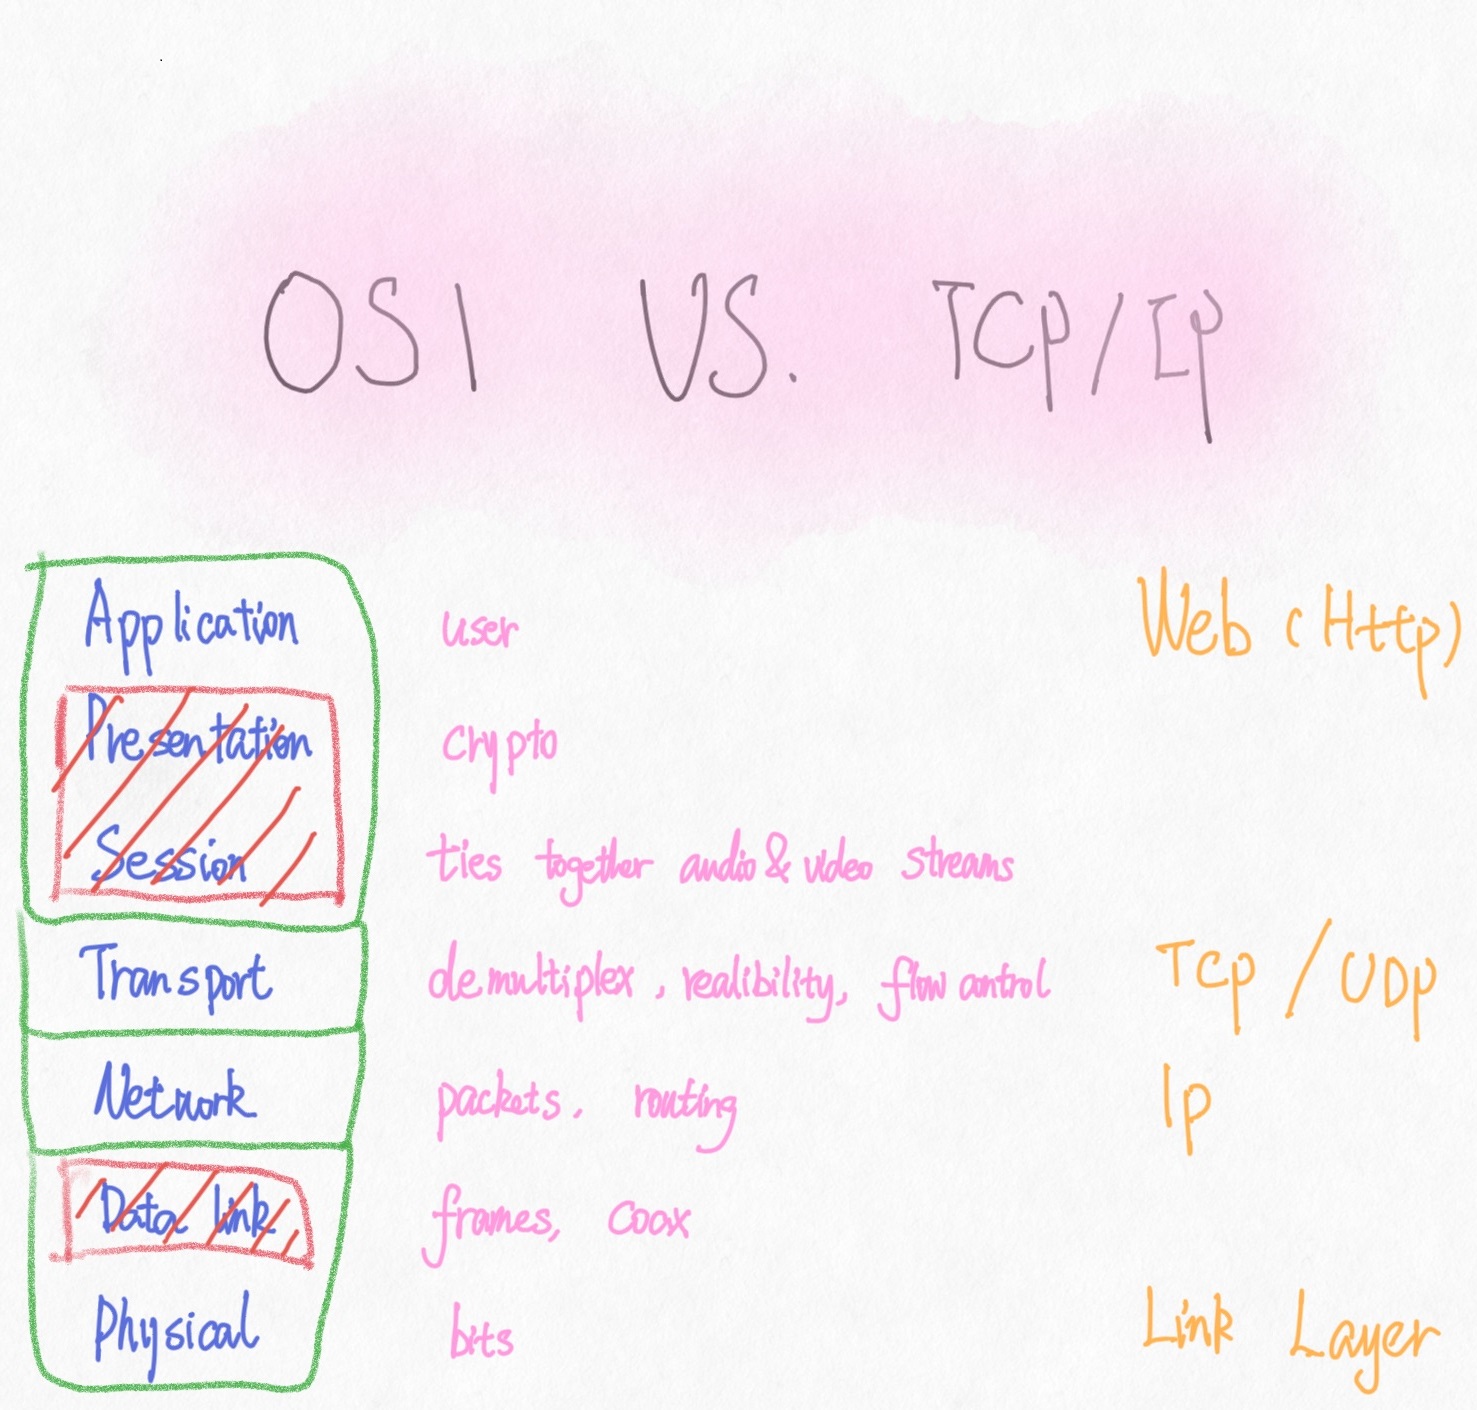 OSI VS. TCP/IP
Application user Web (Http)
Presentation crypto
Session ties together audio & video streams
Transport demultiplex, realibility, flow control TCP / UDP
Network packets, routing Ip
Data link frames, coax
Physical bits Link Layer